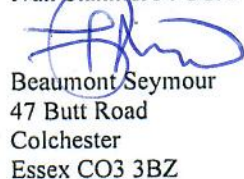 Beaumont Seymour
47 Butt Road
Colchester
Essex CO3 3BZ